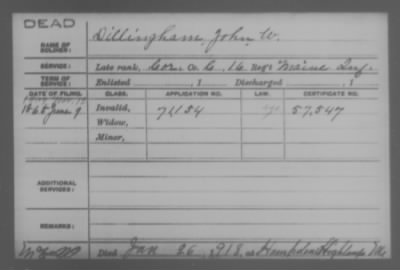 DEAD
NAME OF SOLDIER: Dillingham, John W.
SERVICE: Late rank, Cor. Co. C, 16 Reg't Maine Inf.
TERM OF SERVICE: Enlisted , 1 Discharged , 1
DATE OF FILING. CLASS. APPLICATION NO. LAW. CERTIFICATE NO.
1865 June 9. Invalid, 71154 57,547
Widow,
Minor,
ADDITIONAL SERVICES:
REMARKS:
Died Jan 26, 1918, at Hampden Highlands Me